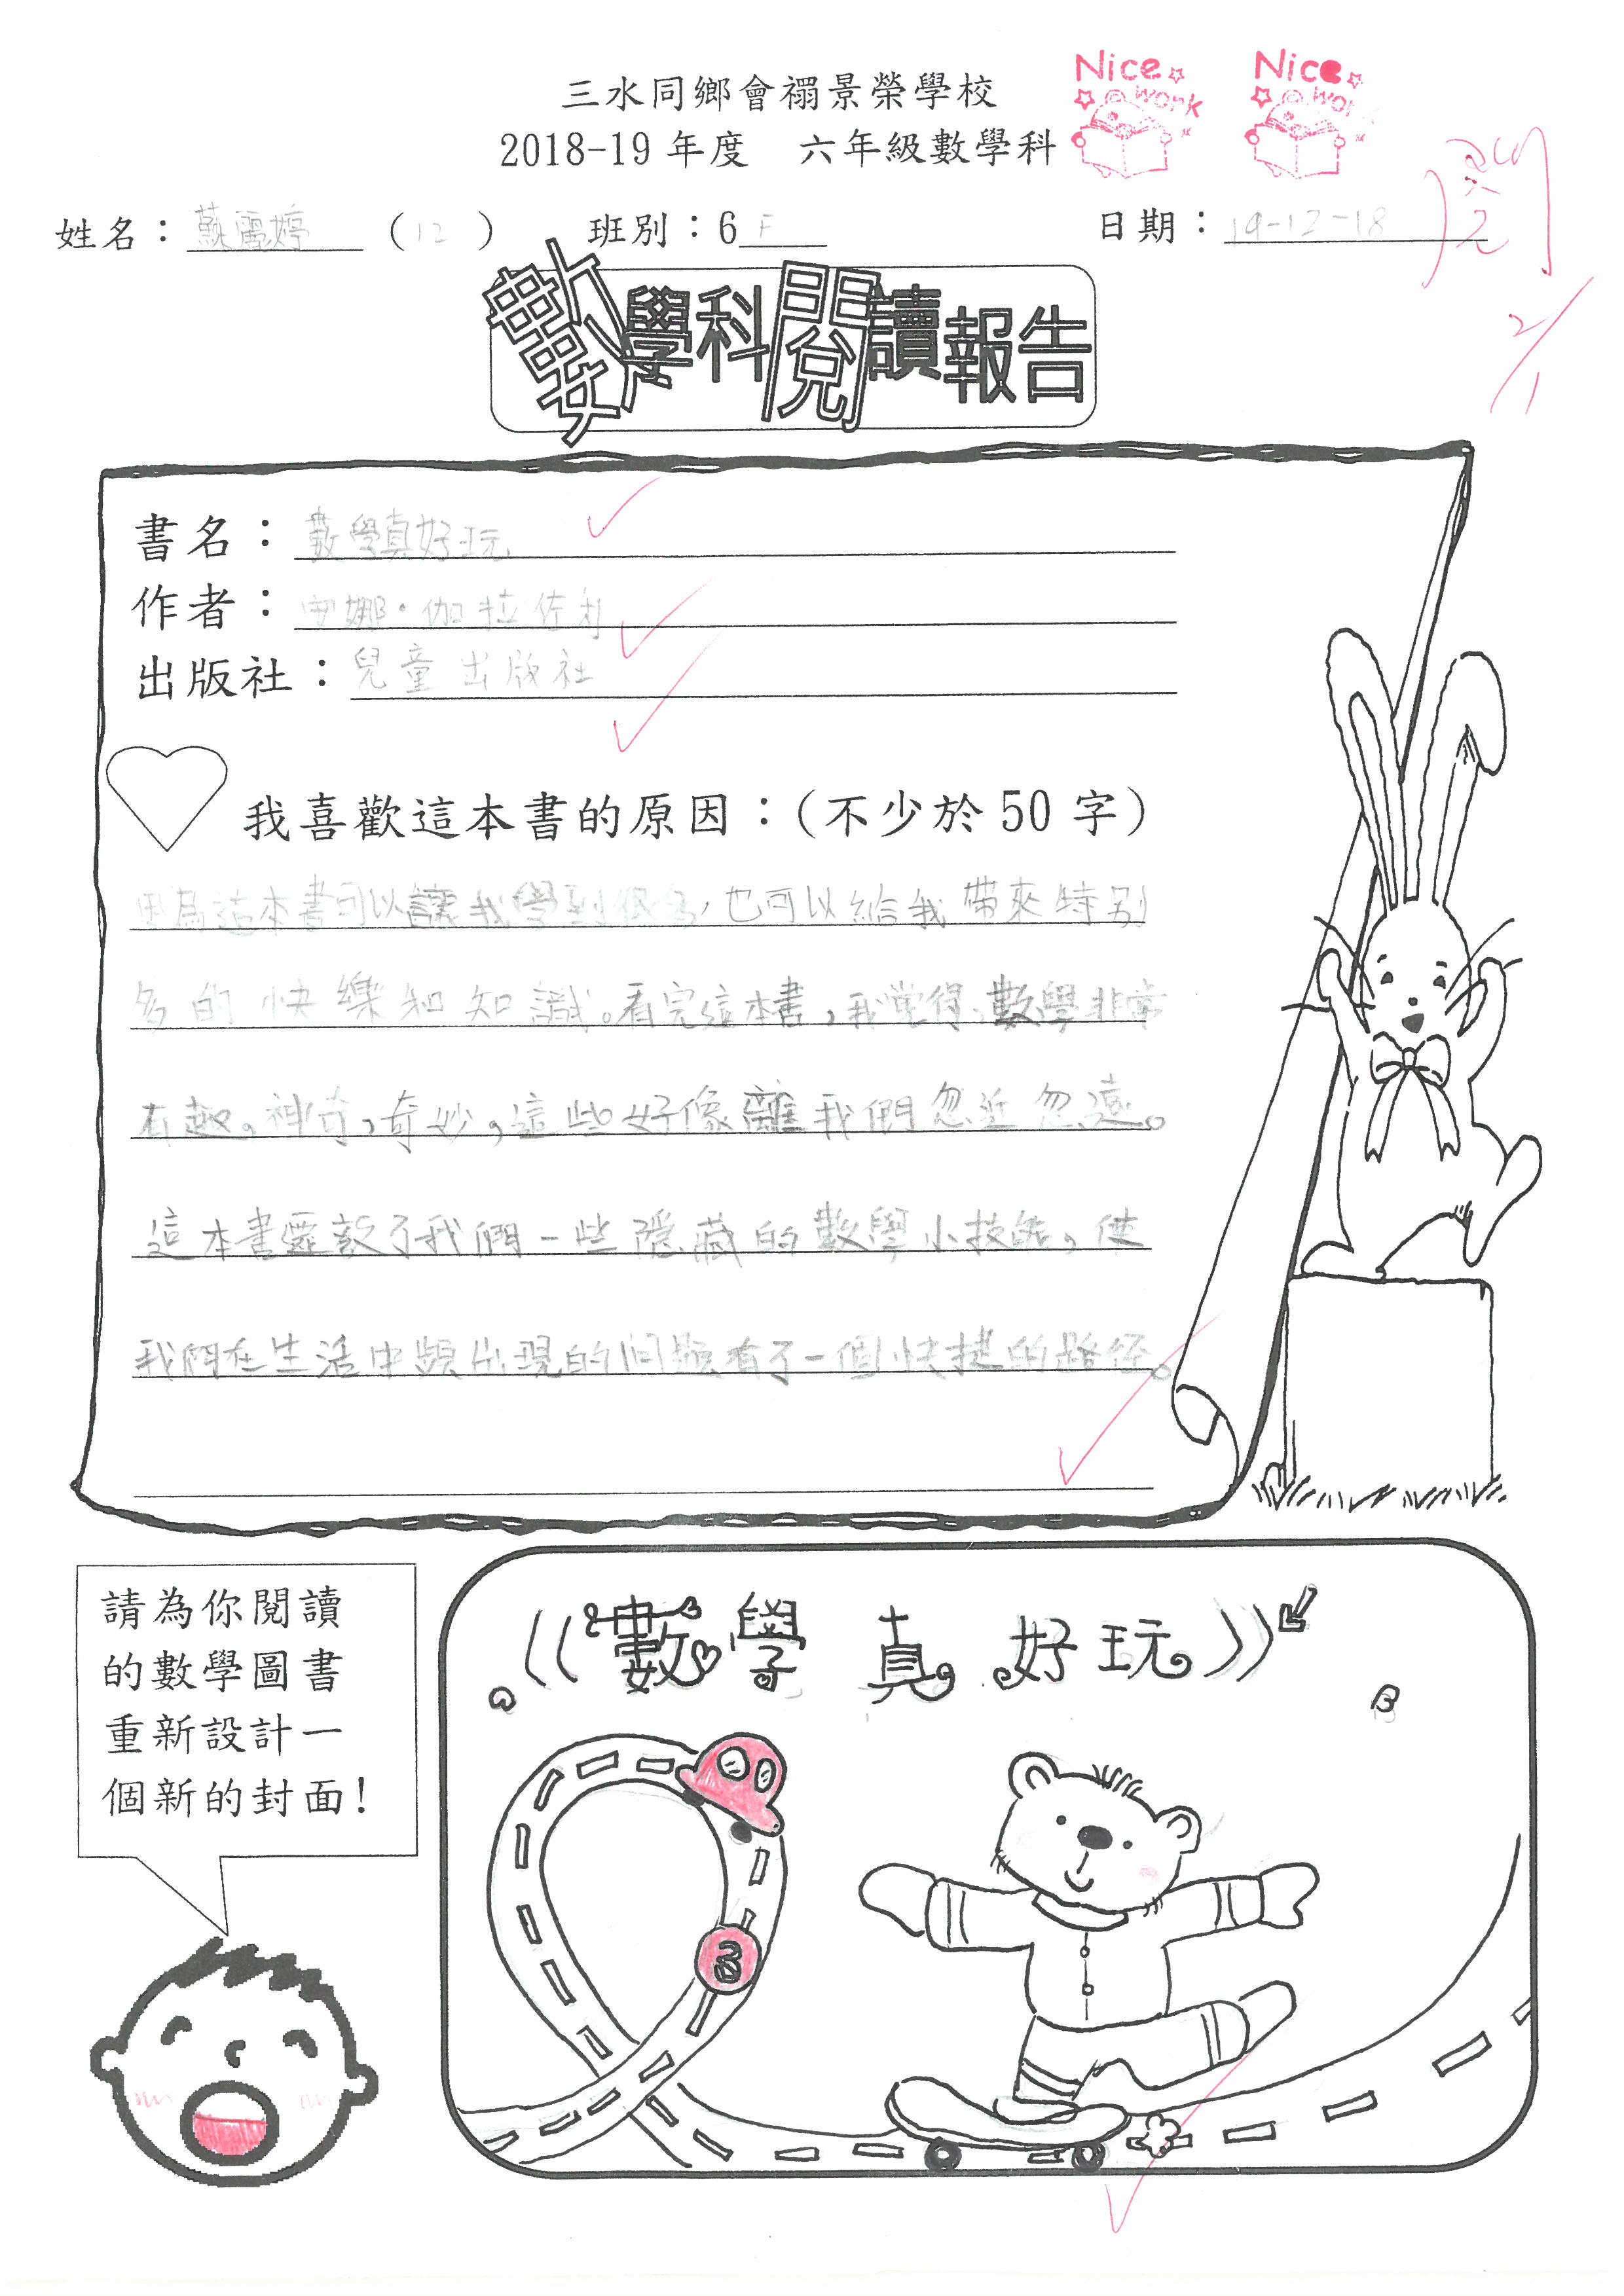 三水同鄉會禤景榮學校
2018-19 年度 六年級數學科
Nice work
Nice work
姓名：蘇麗婷 (12) 班別：6F 日期：19-12-18
數學科閱讀報告
2/1
書名：數學真好玩
作者：安娜·伽拉佐利
出版社：兒童出版社
我喜歡這本書的原因：(不少於 50 字)
因為這本書可以讓我學到很多，也可以給我帶來特別
多的快樂和知識。看完這本書，我覺得，數學非常
有趣，神奇，奇妙，這些好像離我們忽近忽遠。
這本書教了我們一些隱藏的數學小技能，使
我們在生活中頻出現的問題有了一個快捷的路徑。
請為你閱讀
的數學圖書
重新設計一
個新的封面！
《數學真好玩》